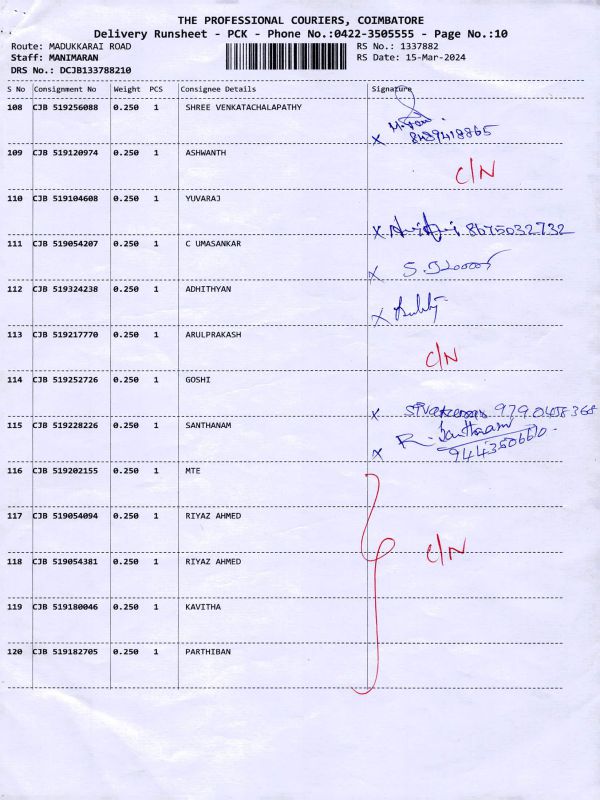 THE PROFESSIONAL COURIERS, COIMBATORE
Delivery Runsheet - PCK - Phone No.:0422-3505555 - Page No.:10
Route: MADUKKARAI ROAD RS No.: 1337882
Staff: MANIMARAN RS Date: 15-Mar-2024
DRS No.: DCJB133788210
S No Consignment No Weight PCS Consignee Details Signature
108 CJB 519256088 0.250 1 SHREE VENKATACHALAPATHY
X 8489418865
109 CJB 519120974 0.250 1 ASHWANTH
C/N
110 CJB 519104608 0.250 1 YUVARAJ
X 8675032732
111 CJB 519054207 0.250 1 C UMASANKAR
X S.
112 CJB 519324238 0.250 1 ADHITHYAN
X
113 CJB 519217770 0.250 1 ARULPRAKASH
C/N
114 CJB 519252726 0.250 1 GOSHI
X 9790458368
115 CJB 519228226 0.250 1 SANTHANAM
X R. Santhanam
9443506610
116 CJB 519202155 0.250 1 MTE
117 CJB 519054094 0.250 1 RIYAZ AHMED
C/N
118 CJB 519054381 0.250 1 RIYAZ AHMED
119 CJB 519180046 0.250 1 KAVITHA
120 CJB 519182705 0.250 1 PARTHIBAN